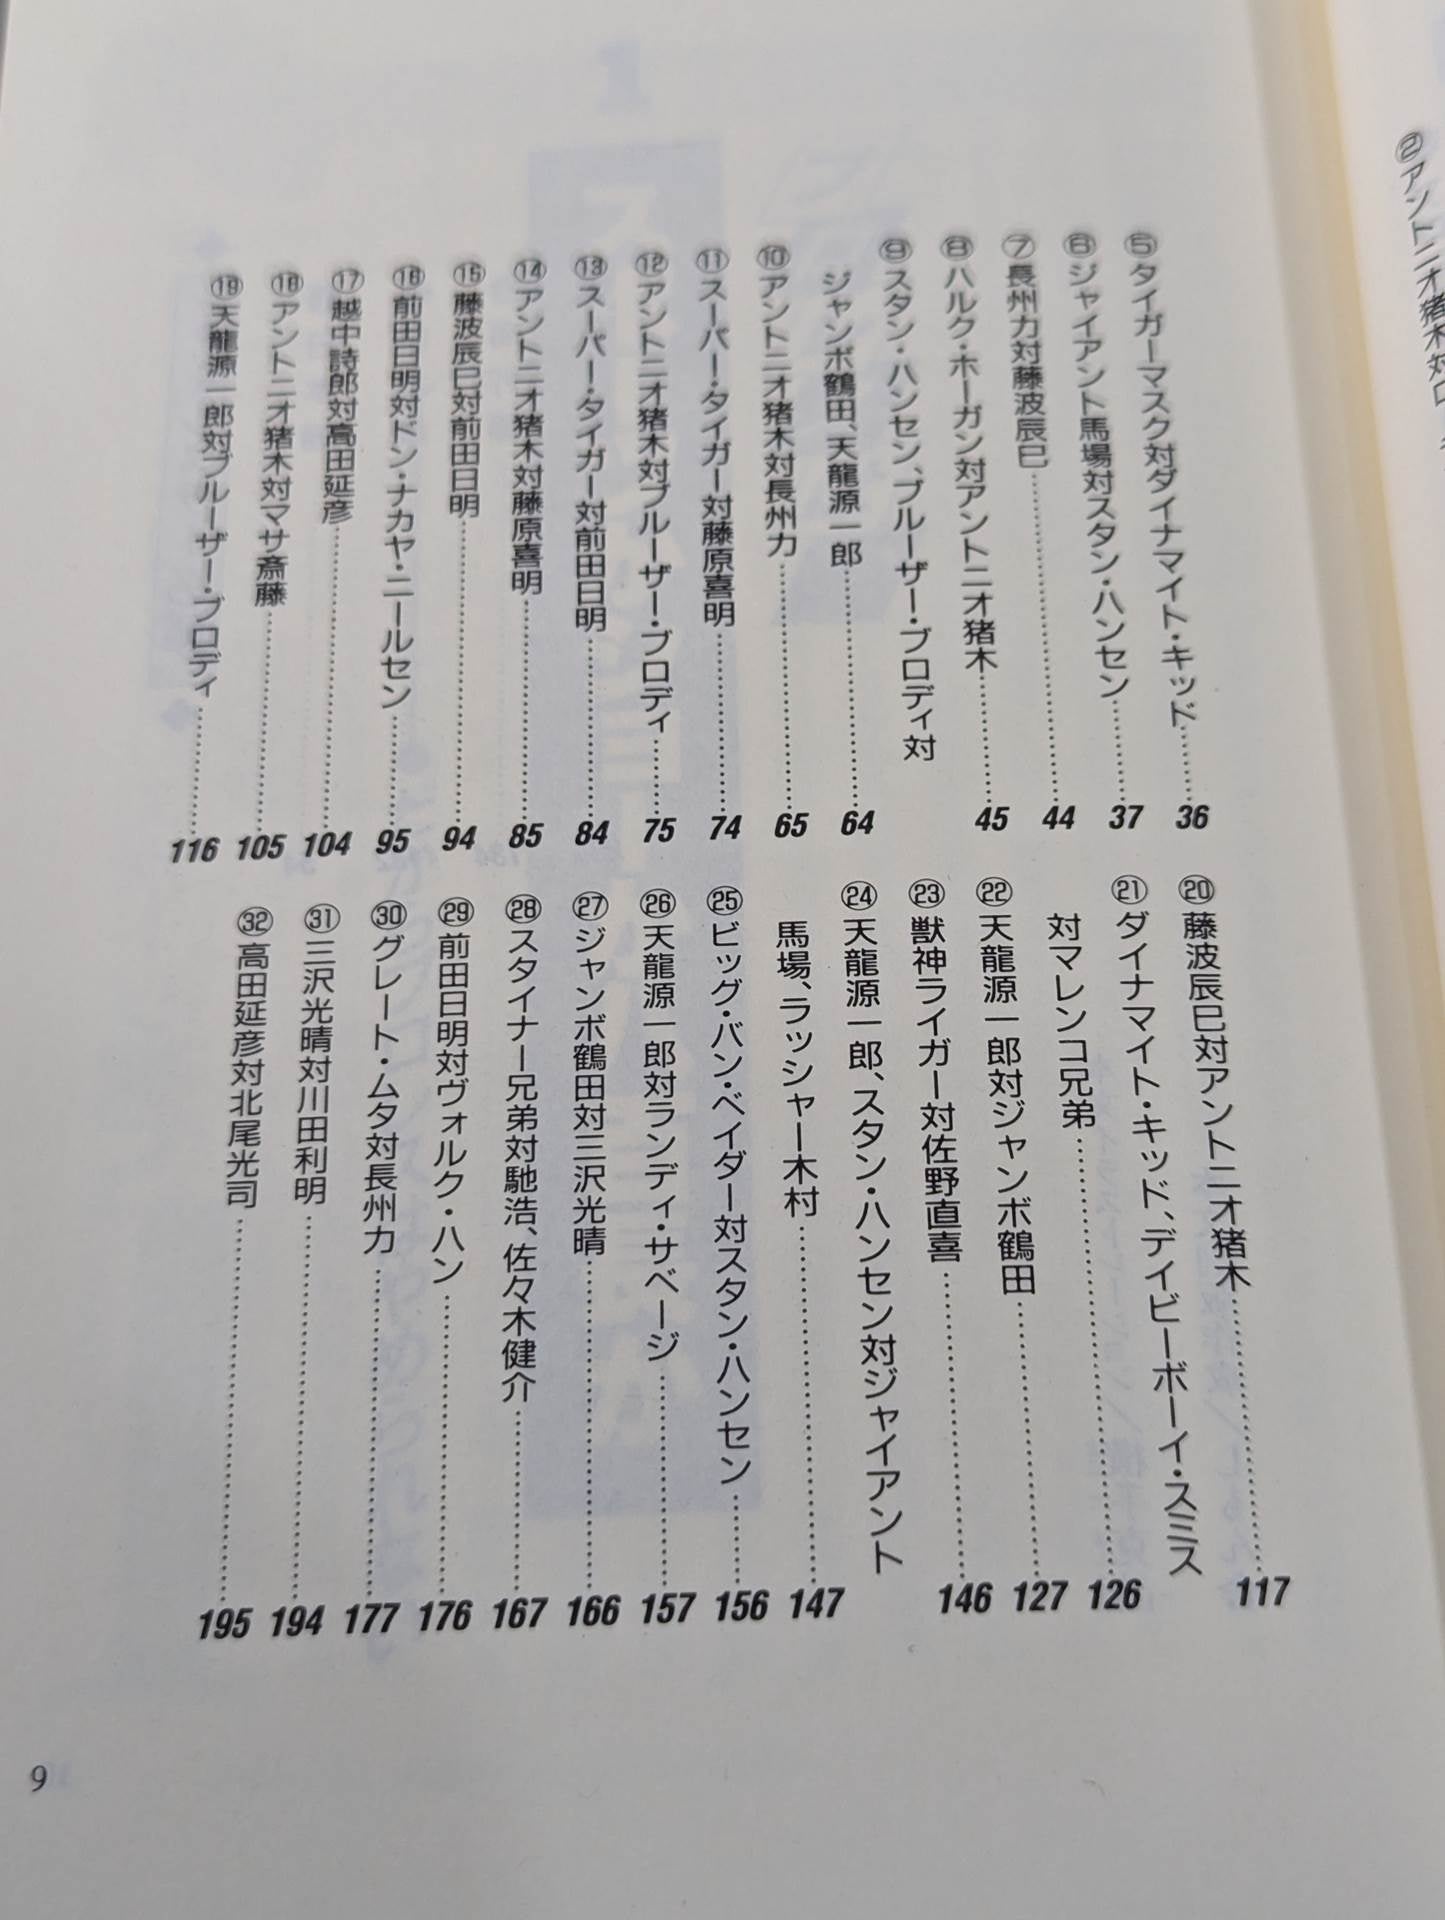 ②アントニオ猪木対ロ
⑤タイガーマスク対ダイナマイト・キッド………36
⑥ジャイアント馬場対スタン・ハンセン………37
⑦長州力対藤波辰巳………44
⑧ハルク・ホーガン対アントニオ猪木………45
⑨スタン・ハンセン、ブルーザー・ブロディ対
ジャンボ鶴田、天龍源一郎………64
⑩アントニオ猪木対長州力………65
⑪スーパー・タイガー対藤原喜明………74
⑫アントニオ猪木対ブルーザー・ブロディ………75
⑬スーパー・タイガー対前田日明………84
⑭アントニオ猪木対藤原喜明………85
⑮藤波辰巳対前田日明………94
⑯前田日明対ドン・ナカヤ・ニールセン………95
⑰越中詩郎対高田延彦………104
⑱アントニオ猪木対マサ斎藤………105
⑲天龍源一郎対ブルーザー・ブロディ………116
⑳藤波辰巳対アントニオ猪木………117
㉑ダイナマイト・キッド、デイビーボーイ・スミス
対マレンコ兄弟………126
㉒天龍源一郎対ジャンボ鶴田………127
㉓獣神ライガー対佐野直喜………146
㉔天龍源一郎、スタン・ハンセン対ジャイアント
馬場、ラッシャー木村………147
㉕ビッグ・バン・ベイダー対スタン・ハンセン………156
㉖天龍源一郎対ランディ・サベージ………157
㉗ジャンボ鶴田対三沢光晴………166
㉘スタイナー兄弟対馳浩、佐々木健介………167
㉙前田日明対ヴォルク・ハン………176
㉚グレート・ムタ対長州力………177
㉛三沢光晴対川田利明………194
㉜高田延彦対北尾光司………195
9